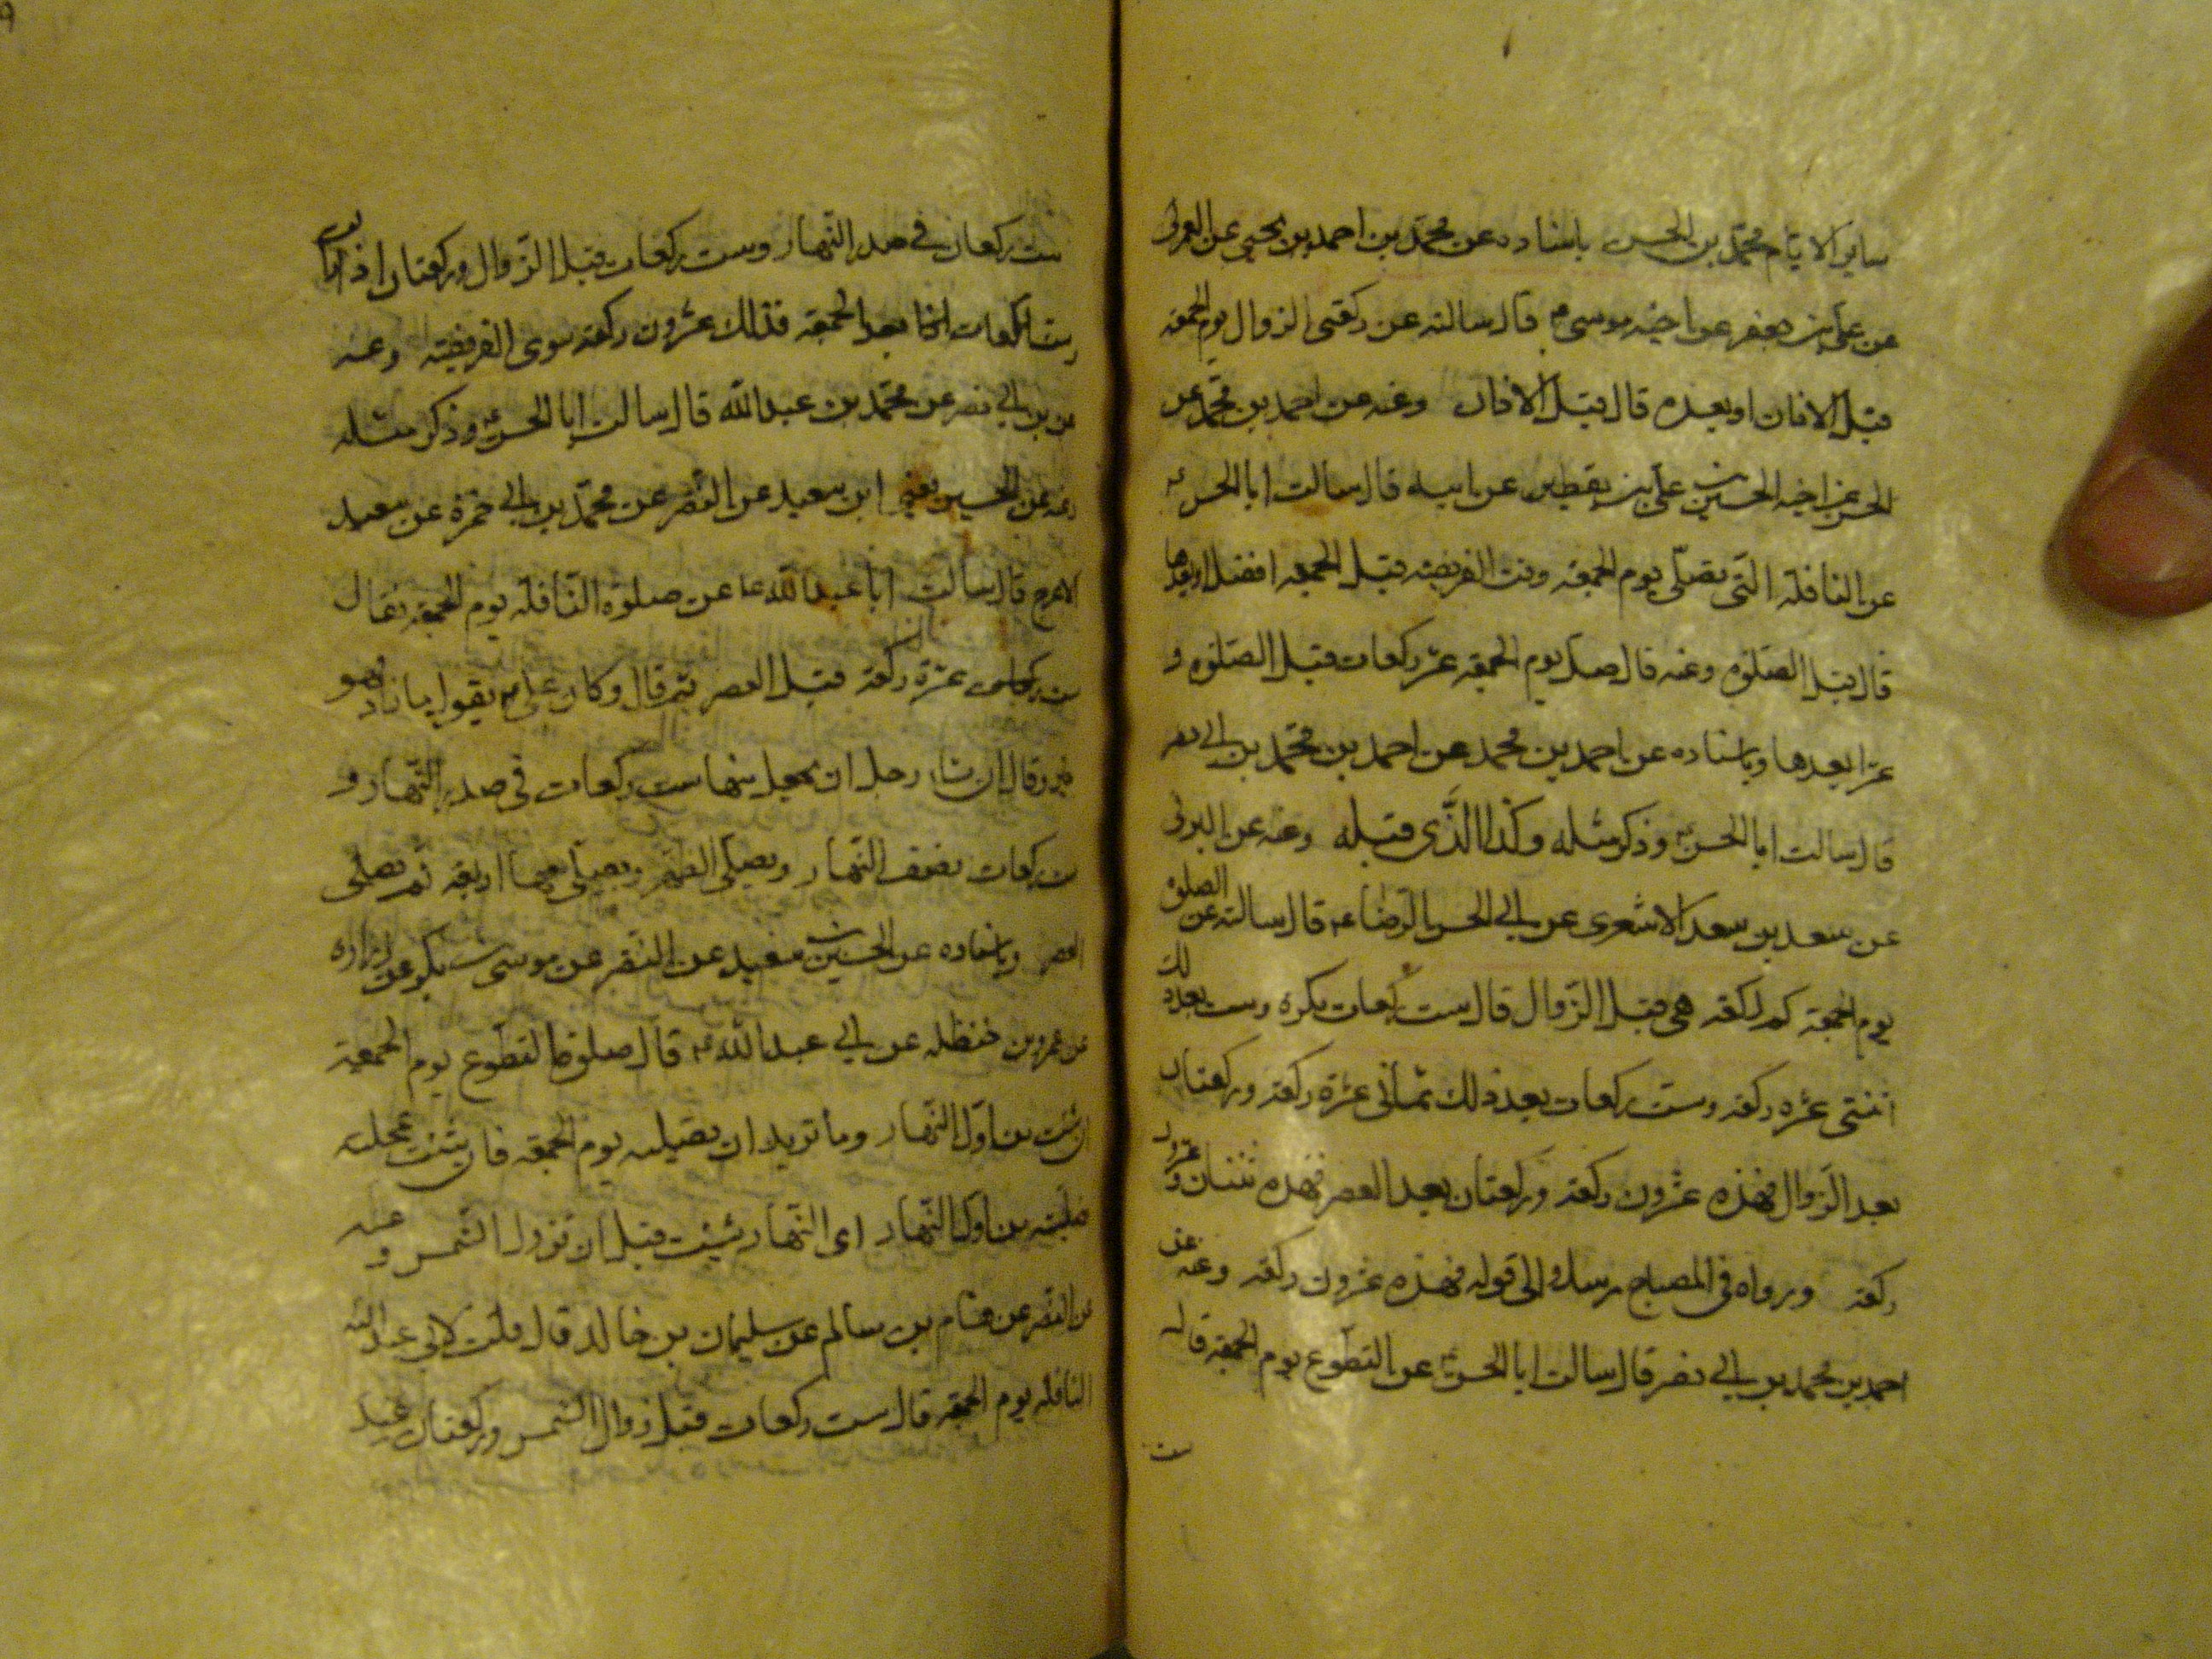 ساير الايام محمد بن الحسن باسناده عن محمد بن احمد بن يحيى عن العمركى
عن على بن جعفر عن اخيه موسى ع قال سالته عن ركعتى الزوال يوم الجمعه
قبل الاذان او بعده قال قبل الاذان وعنه عن احمد بن محمد عن
الحسن عن اخيه الحسين بن على بن يقطين عن ابيه قال سالت ابا الحسن ع
عن النافله التى تصلى يوم الجمعه وقت الفريضه قبل الجمعه افضل او بعدها
قال قبل الصلوة وعنه قال صل يوم الجمعه عشر ركعات قبل الصلوة و
عشرا بعدها وباسناده عن احمد بن محمد عن احمد بن محمد بن ابى نصر
قال سالت ابا الحسن ع وذكر مثله وكذا الذى قبله وعنه عن البرقى
عن سعد بن سعد الاشعرى عن ابى الحسن الرضا ع قال سالته عن الصلوة
يوم الجمعة كم ركعة هى قبل الزوال قال ست ركعات بكرة وست بعد ذلك
اثنتى عشره ركعة وست ركعات بعد ذلك ثمانى عشرة ركعة وركعتان
بعد الزوال فهذه عشرون ركعة وركعتان بعد العصر فهذه ثنتان وعشرون
ركعة ورواه فى المصباح مرسلا الى قوله فهذه عشرون ركعة وعنه عن
احمد بن محمد بن ابى نصر قال سالت ابا الحسن ع عن التطوع يوم الجمعة قال
ست
ست ركعات فى صدر النهار وست ركعات قبل الزوال وركعتان اذا زالت
وست ركعات بعد الجمعه فذلك عشرون ركعة سوى الفريضة وعنه
بن ابى نصر عن محمد بن عبد الله قال سالت ابا الحسن ع وذكر مثله
وعنه عن الحسين يعنى ابن سعيد عن النضر عن محمد بن ابى حمزة عن سعيد
الاعرج قال سالت ابا عبد الله ع عن صلوة النافلة يوم الجمعة فقال
ست عشرة ركعة قبل العصر ثم قال وكان على ع يقول ما زاد فهو
خير وقال ان شاء رجل ان يجعل منها ست ركعات فى صدر النهار و
ست ركعات نصف النهار ويصلى الظهر ويصلى معها اربعة ثم يصلى
العصر وباسناده عن الحسين بن سعيد عن النضر عن موسى بن بكر عن زرارة
عن عمر بن حنظله عن ابى عبد الله ع قال صلوة التطوع يوم الجمعة
ان شئت من اول النهار وما تريد ان تصليه يوم الجمعة فان شئت عجلته
فصليته من اول النهار اى النهار شئت قبل ان تزول الشمس وعنه
عن النضر عن هشام بن سالم عن سليمان بن خالد قال قلت لابى عبد الله
النافلة يوم الجمعة قال ست ركعات قبل زوال الشمس وركعتان عند